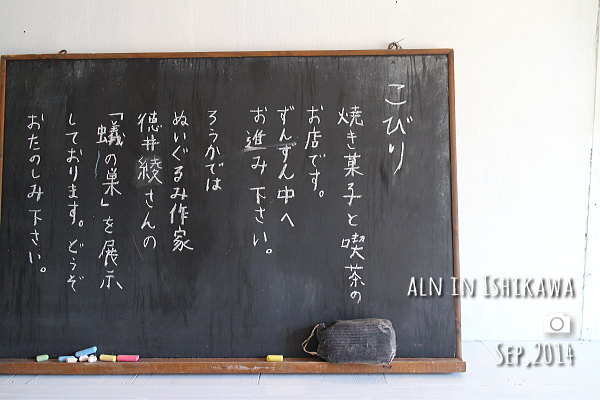 こびり
焼き菓子と喫茶の
お店です。
ずんずん中へ
お進み下さい。
ろうかでは
ぬいぐるみ作家
徳井綾さんの
「蟻の巣」を展示
しております。どうぞ
おたのしみ下さい。
ALN IN ISHIKAWA
SEP,2014